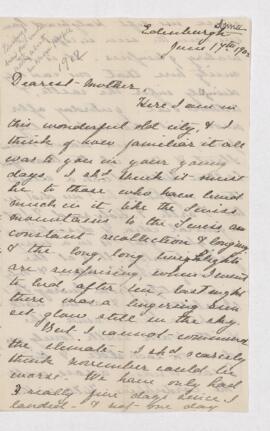 Edinburgh
June 17th 190
1902
Dearest Mother
Here I am in
this wonderful old city, & I
think of how familiar it all
was to you in your young
days. I shd. think it must
be to those who have lived
much in it, like the Swiss
mountains to the Swiss, an
constant recollection & longing
& the long, long twilights
are surprising, when I went
to bed after ten last night
there was a lingering sun
set glow still in the sky.
But I cannot commend
the climate. I shd. scarcely
think November could be
worse. We have only had
3 really fine days since I
landed - & not one day